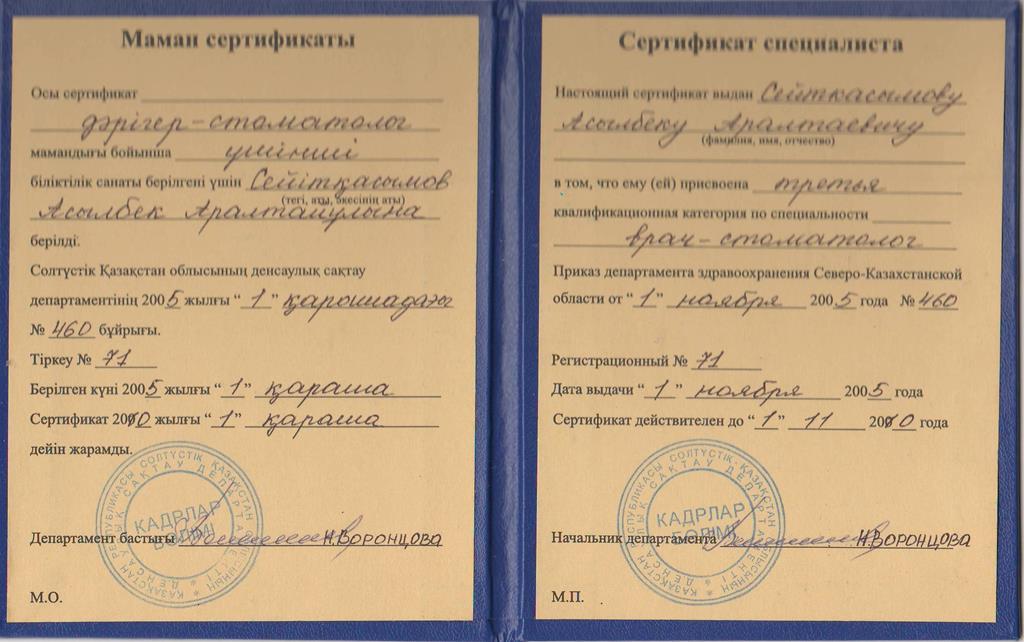 Маман сертификаты
Осы сертификат
дәрігер-стоматолог
мамандығы бойынша үшінші
біліктілік санаты берілгені үшін Сейітқасымов
(тегі, аты, әкесінің аты)
Асылбек Аралтайұлына
берілді.
Солтүстік Қазақстан облысының денсаулық сақтау
департаментінің 2005 жылғы “1” қарашадағы
№ 460 бұйрығы.
Тіркеу № 71
Берілген күні 2005 жылғы “1” қараша
Сертификат 2010 жылғы “1” қараша
дейін жарамды.
КАДРЛАР
БӨЛІМІ
Департамент бастығы Н.ВОРОНЦОВА
М.О.
Сертификат специалиста
Настоящий сертификат выдан Сейткасымову
Асылбеку Аралтаевичу
(фамилия, имя, отчество)
в том, что ему (ей) присвоена третья
квалификационная категория по специальности
врач-стоматолог
Приказ департамента здравоохранения Северо-Казахстанской
области от “1” ноября 2005 года № 460
Регистрационный № 71
Дата выдачи “1” ноября 2005 года
Сертификат действителен до “1” 11 2010 года
КАДРЛАР
БӨЛІМІ
Начальник департамента Н.ВОРОНЦОВА
М.П.